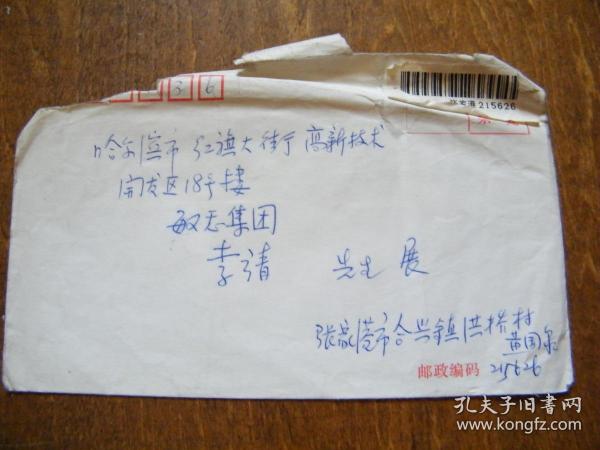 3 6
张家港 215626
哈尔滨市 红旗大街 高新技术
开发区18号楼
敏志集团
李清 先生 展
张家港市合兴镇洪桥村
黄国
邮政编码 215626
孔夫子旧书网
www.kongfz.com